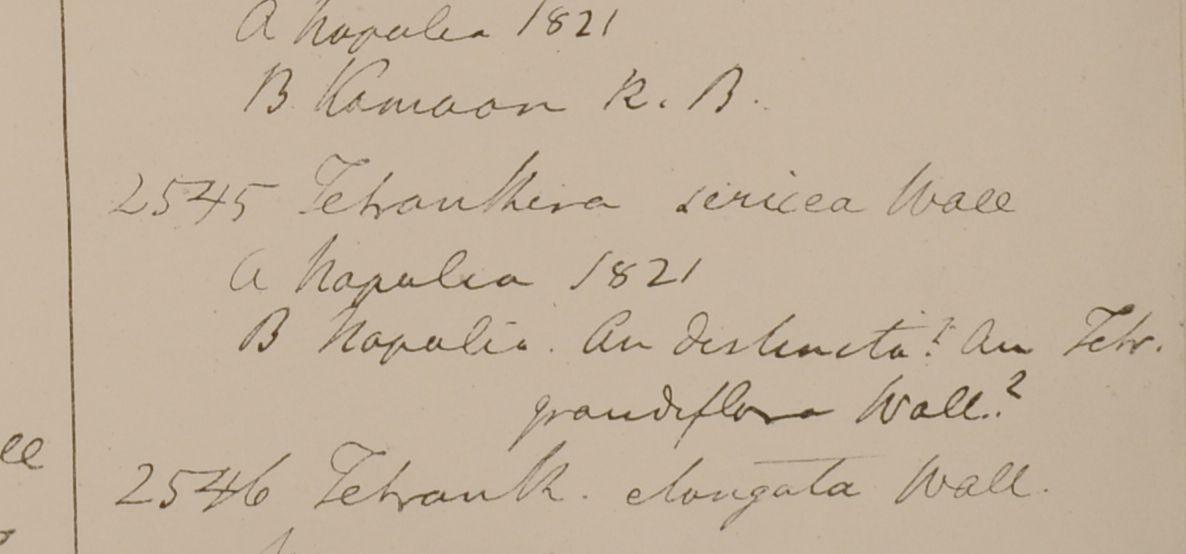 A Napalia 1821
B. Kamaon R. B.
2545 Tetranthera sericea Wall
A Napalia 1821
B Napalia. An distincta? An Tetr.
grandiflora Wall.?
ll
2546 Tetranth. elongata Wall.